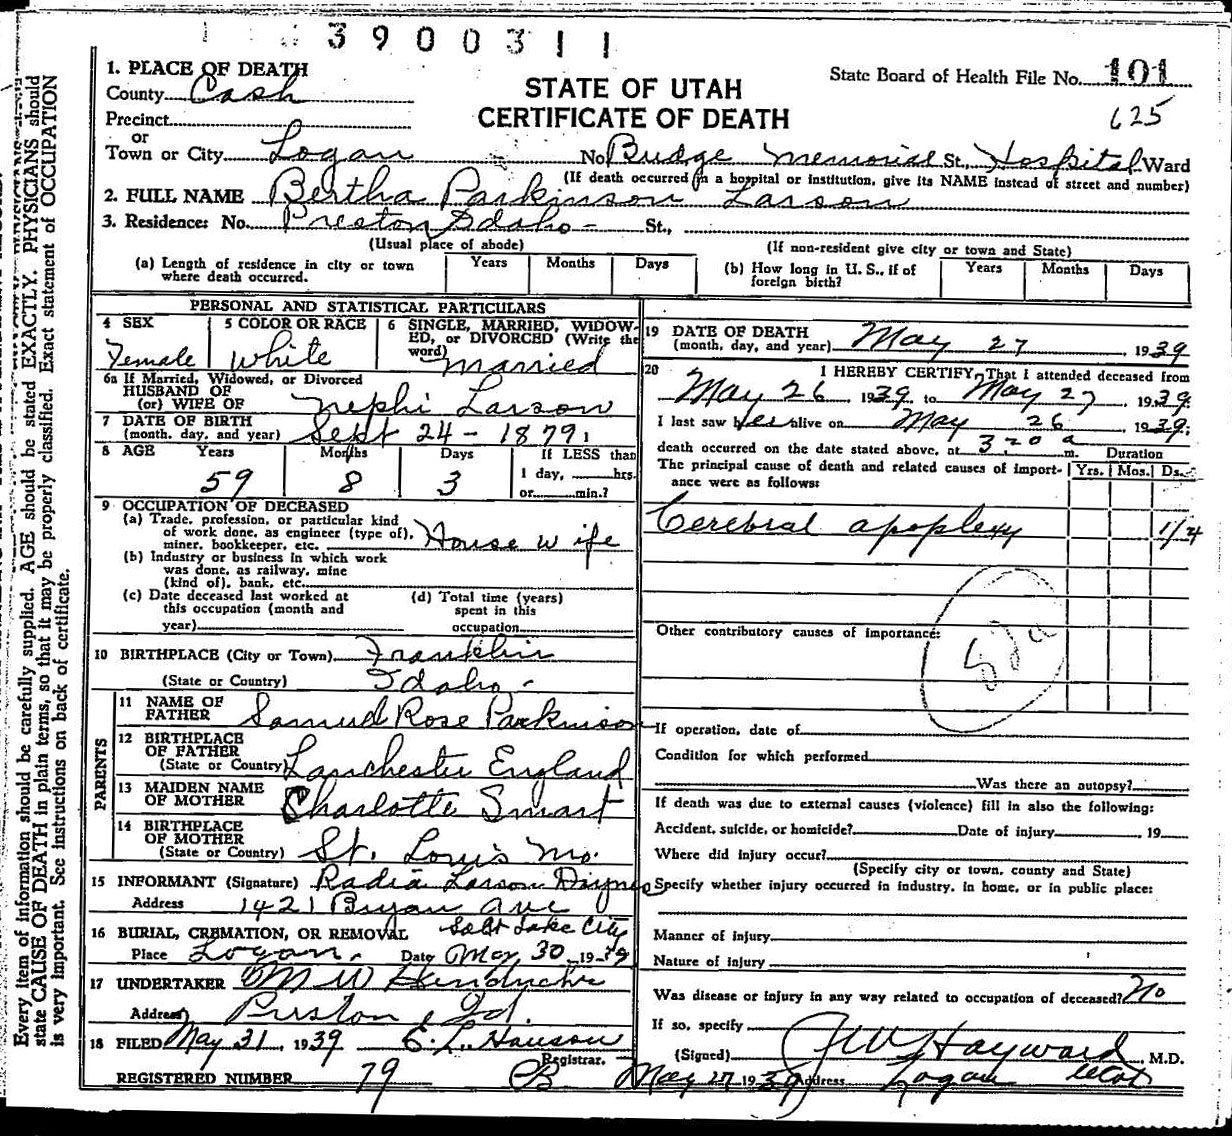 3900311
1. PLACE OF DEATH
County Cash
STATE OF UTAH
CERTIFICATE OF DEATH
State Board of Health File No. 101
625
Precinct
or
Town or City Logan No. Budge Memorial St., Hospital Ward
(If death occurred in a hospital or institution, give its NAME instead of street and number)
2. FULL NAME Bertha Parkinson Larson
3. Residence: No. Preston Idaho - St.,
(Usual place of abode) (If non-resident give city or town and State)
(a) Length of residence in city or town where death occurred. Years Months Days
(b) How long in U. S., if of foreign birth? Years Months Days
PERSONAL AND STATISTICAL PARTICULARS
4 SEX Female
5 COLOR OR RACE White
6 SINGLE, MARRIED, WIDOWED, or DIVORCED (Write the word) Married
6a If Married, Widowed, or Divorced
HUSBAND OF
(or) WIFE OF Nephi Larson
7 DATE OF BIRTH
(month, day, and year) Sept 24 - 1879
8 AGE Years 59 Months 8 Days 3 If LESS than
1 day, hrs.
or min.?
9 OCCUPATION OF DECEASED
(a) Trade, profession, or particular kind of work done, as engineer (type of), miner, bookkeeper, etc. House wife
(b) Industry or business in which work was done, as railway, mine (kind of), bank, etc.
(c) Date deceased last worked at this occupation (month and year)
(d) Total time (years) spent in this occupation
10 BIRTHPLACE (City or Town) Franklin
(State or Country) Idaho -
PARENTS
11 NAME OF FATHER Samuel Rose Parkinson
12 BIRTHPLACE OF FATHER
(State or Country) Lanchester England
13 MAIDEN NAME OF MOTHER Charlotte Smart
14 BIRTHPLACE OF MOTHER
(State or Country) St. Louis Mo.
15 INFORMANT (Signature) Radia Larson
Address 1421 Bryan Ave
Salt Lake City
16 BURIAL, CREMATION, OR REMOVAL
Place Logan. Date May 30, 1939
17 UNDERTAKER M W Hendricks
Address Preston, Id.
18 FILED May 31, 1939 E. L. Hanson
Registrar.
REGISTERED NUMBER 79
19 DATE OF DEATH
(month, day, and year) May 27, 1939
20 I HEREBY CERTIFY, That I attended deceased from
May 26 1939, to May 27, 1939
I last saw her alive on May 26 1939;
death occurred on the date stated above, at 3:20 a m. Duration
The principal cause of death and related causes of importance were as follows: Yrs. Mos. Ds.
Cerebral apoplexy 1/4
Other contributory causes of importance:
If operation, date of
Condition for which performed
Was there an autopsy?
If death was due to external causes (violence) fill in also the following:
Accident, suicide, or homicide? Date of injury , 19
Where did injury occur?
(Specify city or town, county and State)
Specify whether injury occurred in industry, in home, or in public place:
Manner of injury
Nature of injury
Was disease or injury in any way related to occupation of deceased? No
If so, specify
(Signed) Hayward, M.D.
May 27 1939 Address Logan Utah
Every item of information should be carefully supplied. AGE should be stated EXACTLY. PHYSICIANS should
state CAUSE OF DEATH in plain terms, so that it may be properly classified. Exact statement of OCCUPATION
is very important. See instructions on back of certificate.